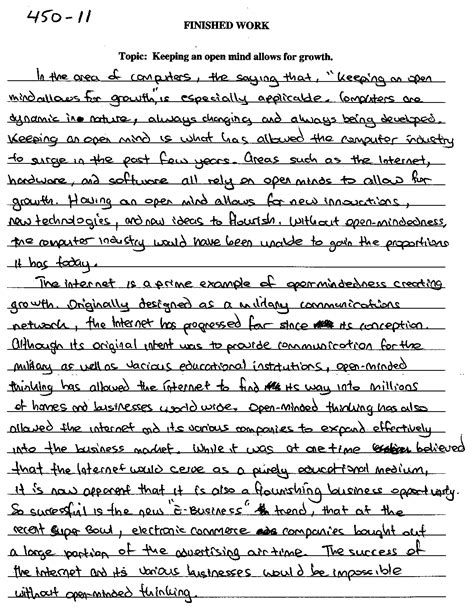 450-11
FINISHED WORK
Topic: Keeping an open mind allows for growth.
In the area of computers, the saying that, "Keeping an open
mind allows for growth", is especially applicable. Computers are
dynamic in nature, always changing and always being developed.
Keeping an open mind is what has allowed the computer industry
to surge in the past few years. Areas such as the Internet,
hardware, and software all rely on open minds to allow for
growth. Having an open mind allows for new innovations,
new technologies, and new ideas to flourish. Without open-mindedness,
the computer industry would have been unable to gain the proportions
it has today.
The internet is a prime example of openmindedness creating
growth. Originally designed as a military communications
network, the Internet has progressed far since its conception.
Although its original intent was to provide communication for the
military as well as various educational institutions, open-minded
thinking has allowed the internet to find its way into millions
of homes and businesses world wide. Open-minded thinking has also
allowed the internet and its various companies to expand effectively
into the business market. While it was at one time believed
that the Internet would cerve as a purely educational medium,
it is now apparent that it is also a flourishing business opportunity.
So sucessful is the new "E-Business" trend, that at the
recent Super Bowl, electronic commerce companies bought out
a large portion of the advertising airtime. The success of
the internet and its various businesses would be impossible
without openminded thinking.